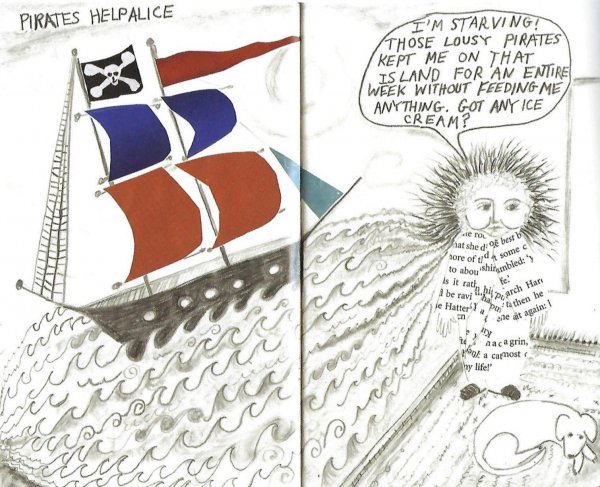 PIRATES HELPALICE
I'M STARVING!
THOSE LOUSY PIRATES
KEPT ME ON THAT
ISLAND FOR AN ENTIRE
WEEK WITHOUT FEEDING ME
ANYTHING. GOT ANY ICE
CREAM?
hat she d of best b
nore of it some c
to abou mbled: 'y
is it rath arch Hare
be ravi then he
e Hatter at again: I
a c a grin,
a ca most
my life!'